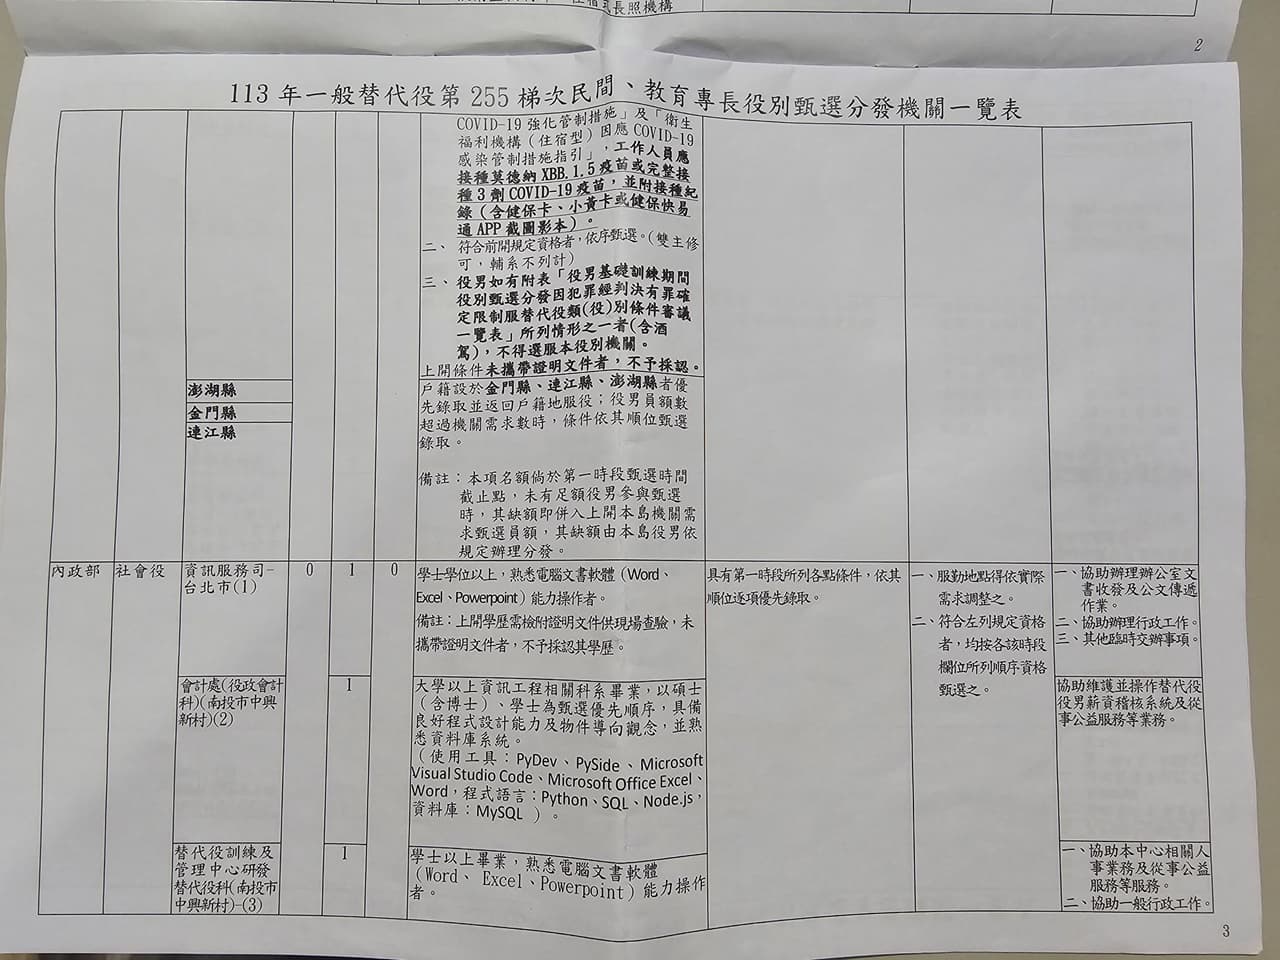 住宿式長照機構
2
113 年一般替代役第 255 梯次民間、教育專長役別甄選分發機關一覽表
COVID-19 強化管制措施」及「衛生
福利機構（住宿型）因應 COVID-19
感染管制措施指引」，工作人員應
接種莫德納 XBB.1.5 疫苗或完整接
種 3 劑 COVID-19 疫苗，並附接種紀
錄（含健保卡、小黃卡或健保快易
通 APP 截圖影本）。
二、 符合前開規定資格者，依序甄選。（雙主修
可，輔系不列計）
三、役男如有附表「役男基礎訓練期間
役別甄選分發因犯罪經判決有罪確
定限制服替代役類(役)別條件審議
一覽表」所列情形之一者(含酒
駕)，不得選服本役別機關。
上開條件未攜帶證明文件者，不予採認。
澎湖縣
金門縣
連江縣
戶籍設於金門縣、連江縣、澎湖縣者優
先錄取並返回戶籍地服役；役男員額數
超過機關需求數時，條件依其順位甄選
錄取。
備註：本項名額倘於第一時段甄選時間
截止點，未有足額役男參與甄選
時，其缺額即併入上開本島機關需
求甄選員額，其缺額由本島役男依
規定辦理分發。
內政部
社會役
資訊服務司-
台北市(1)
0
1
0
學士學位以上，熟悉電腦文書軟體（Word、
Excel、Powerpoint）能力操作者。
備註：上開學歷需檢附證明文件供現場查驗，未
攜帶證明文件者，不予採認其學歷。
具有第一時段所列各點條件，依其
順位逐項優先錄取。
一、服勤地點得依實際
需求調整之。
二、符合左列規定資格
者，均按各該時段
欄位所列順序資格
甄選之。
一、協助辦理辦公室文
書收發及公文傳遞
作業。
二、協助辦理行政工作。
三、其他臨時交辦事項。
會計處(役政會計
科)(南投市中興
新村)(2)
1
大學以上資訊工程相關科系畢業，以碩士
（含博士）、學士為甄選優先順序，具備
良好程式設計能力及物件導向觀念，並熟
悉資料庫系統。
（使用工具：PyDev、PySide、Microsoft
Visual Studio Code、Microsoft Office Excel、
Word，程式語言：Python、SQL、Node.js，
資料庫：MySQL ）。
協助維護並操作替代役
役男薪資稽核系統及從
事公益服務等業務。
替代役訓練及
管理中心研發
替代役科(南投市
中興新村)-(3)
1
學士以上畢業，熟悉電腦文書軟體
（Word、 Excel、Powerpoint）能力操作
者。
一、協助本中心相關人
事業務及從事公益
服務等服務。
二、協助一般行政工作。
3